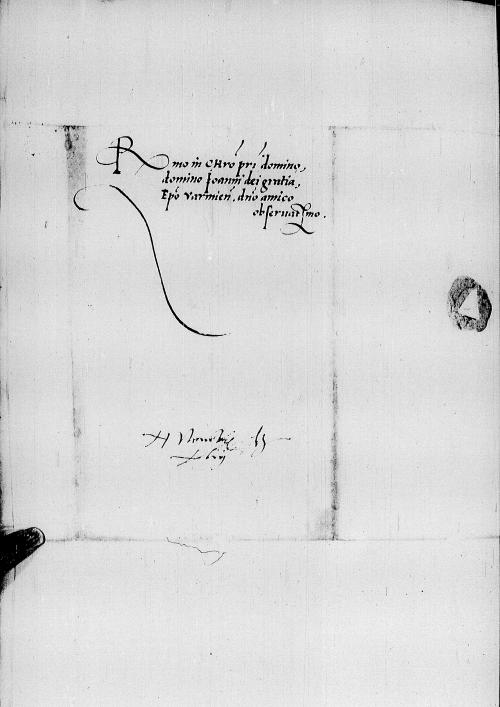 Rmo in Chro pri domino,
domino Joanni dei gratia,
Epo varmien. dno amico
observatmo.